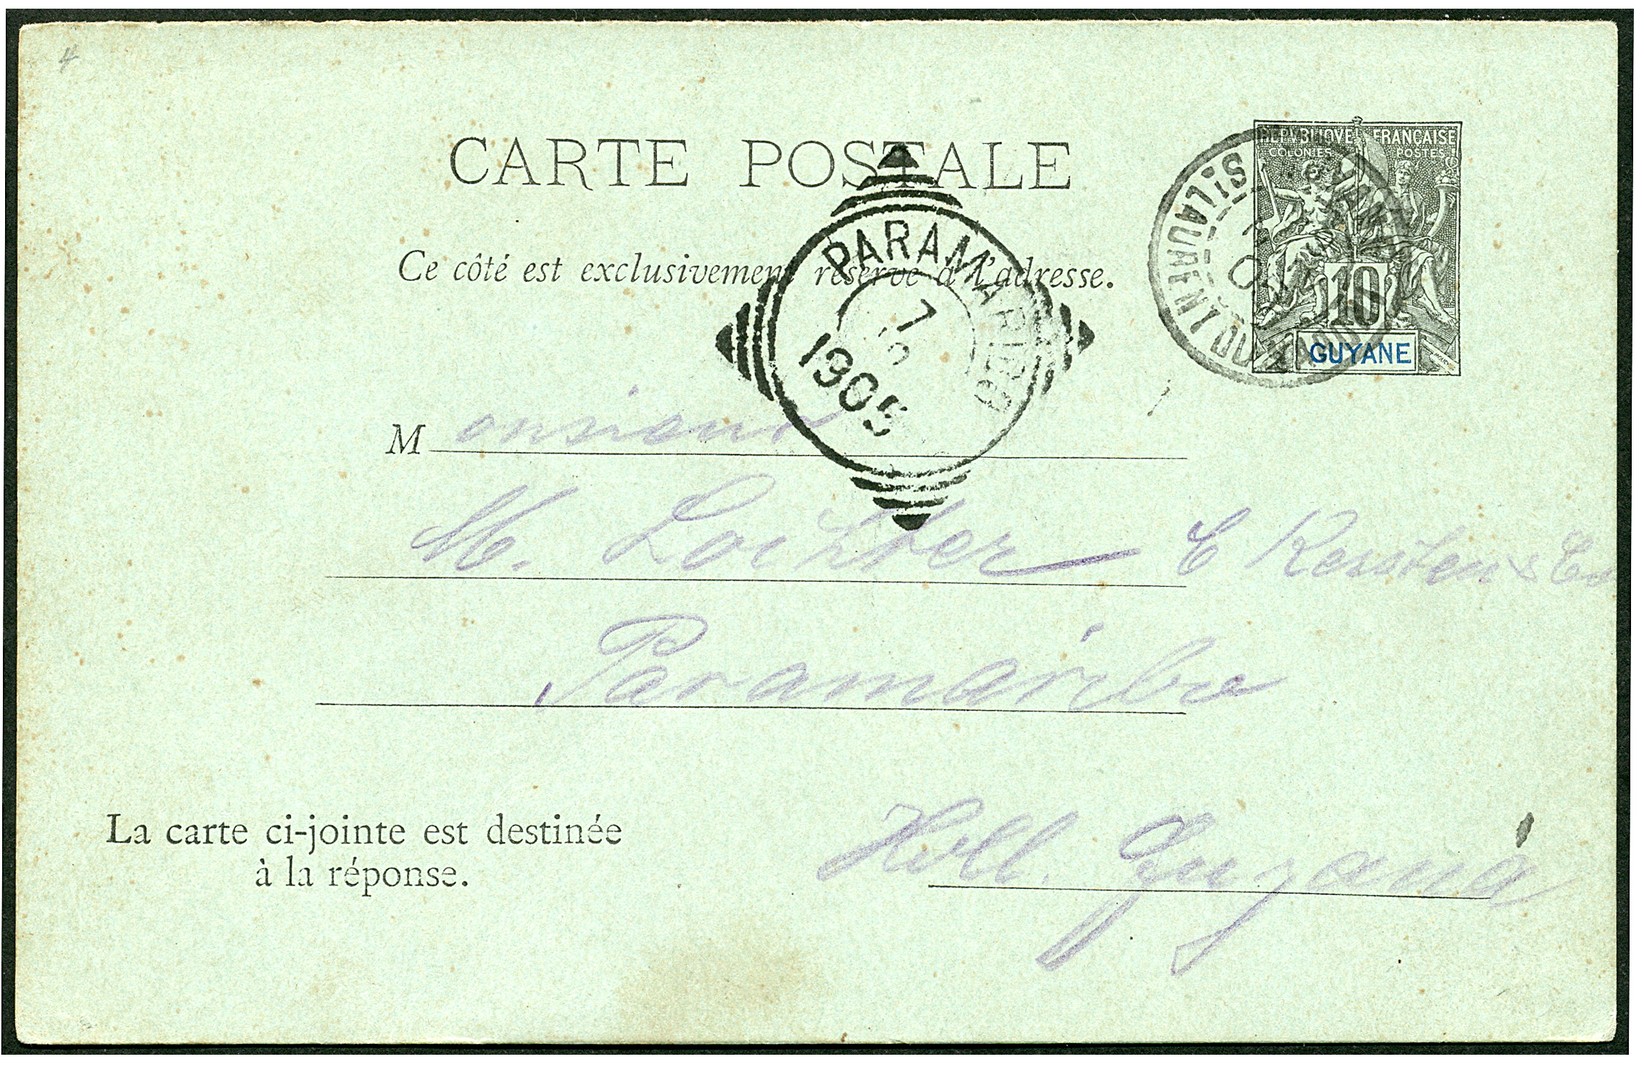 4
CARTE POSTALE
REPUBLIQUE FRANÇAISE
COLONIES POSTES
10
GUYANE
ST LAURENT DU MARONI
Ce côté est exclusivement réservé à l'adresse.
PARAMARIBO
7
10
1905
Monsieur
M. Lochter C Kersten & Co
Paramaribo
Holl. Guyana
La carte ci-jointe est destinée
à la réponse.